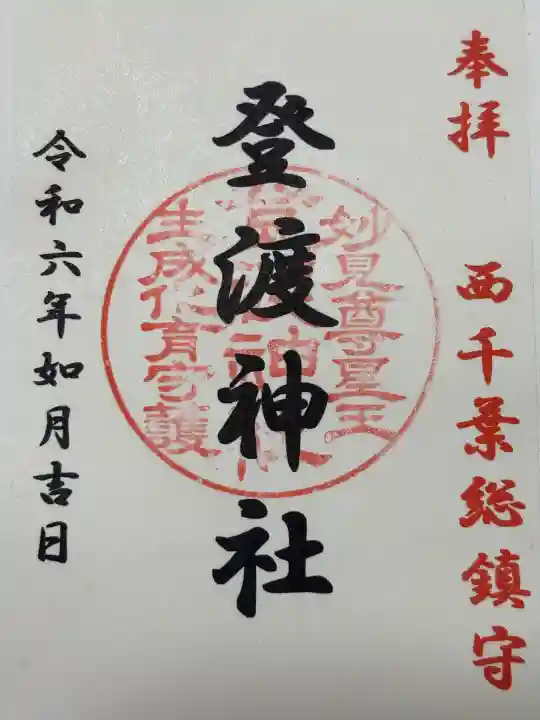 奉拝 西千葉総鎮守
登渡神社
妙見尊星王
生成化育守護
令和六年如月吉日